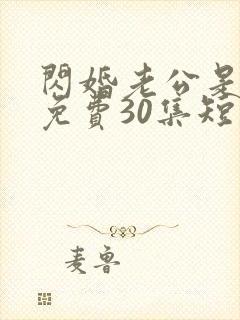 閃婚老公是
免費30集短
麦鲁